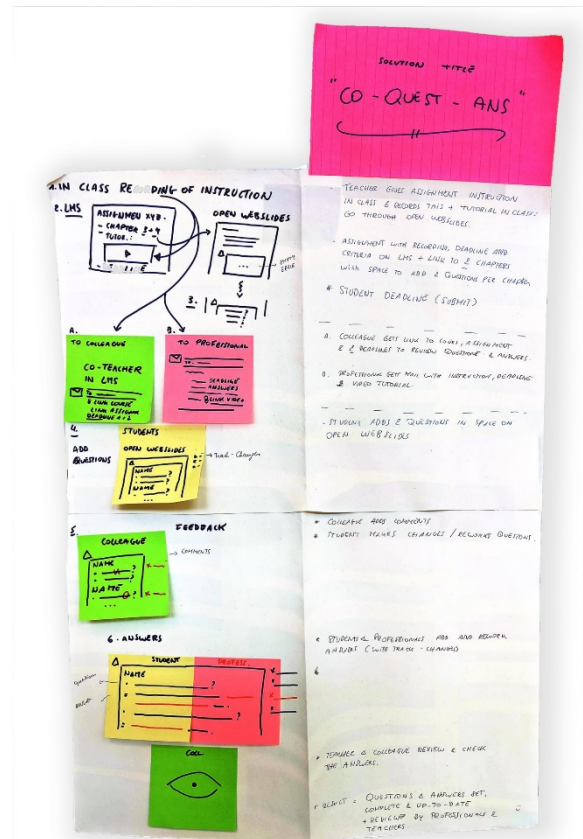 SOLUTION TITLE
"CO-QUEST-ANS"
1. IN CLASS RECORDING OF INSTRUCTION
2. LMS
ASSIGNMEN XYZ.
- CHAPTER 3+4
- TUTOR.:
OPEN WEBSLIDES
EMPTY SPACE
3.
A.
TO COLLEAGUE
CO-TEACHER
IN LMS
& LINK COURSE
LINK ASSIGNM
DEADLINE 1+2
B.
TO PROFESSIONAL
TO
DEADLINE
ANSWERS
& LINK VIDEO
4.
ADD
QUESTIONS
STUDENTS
OPEN WEBSLIDES
NAME
NAME
→ Track-Changes
- TEACHER GIVES ASSIGNMENT INSTRUCTION
IN CLASS & RECORDS THIS + TUTORIAL IN CLASS:
GO THROUGH OPEN WEBSLIDES.
- ASSIGNMENT WITH RECORDING, DEADLINE AND
CRITERIA ON LMS + LINK TO 2 CHAPTERS
WITH SPACE TO ADD 2 QUESTIONS PER CHAPTER
* STUDENT DEADLINE (SUBMIT)
A. COLLEAGUE GETS LINK TO COURS, ASSIGNMENT
& 2 DEADLINES TO REVIEW QUESTIONS & ANSWERS.
B. PROFESSIONAL GETS MAIL WITH INSTRUCTION, DEADLINE
& VIDEO TUTORIAL.
- STUDENT ADDS 2 QUESTIONS IN SPACE ON
OPEN WEBSLIDES
5.
FEEDBACK
COLLEAGUE
NAME
NAME
→ COMMENTS
* COLLEAGUE ADDS COMMENTS
* STUDENT MAKES CHANGES / REWORKS QUESTIONS.
6. ANSWERS
STUDENT
PROFESS.
NAME
Question
COLL
* STUDENTS & PROFESSIONALS ADD AND REWORK
ANSWERS (WITH TRACK-CHANGES)
6
* TEACHER & COLLEAGUE REVIEW & CHECK
THE ANSWERS.
* RESULT = QUESTIONS & ANSWERS SET,
COMPLETE & UP-TO-DATE
+ REVIEWED BY PROFESSIONALS &
TEACHERS